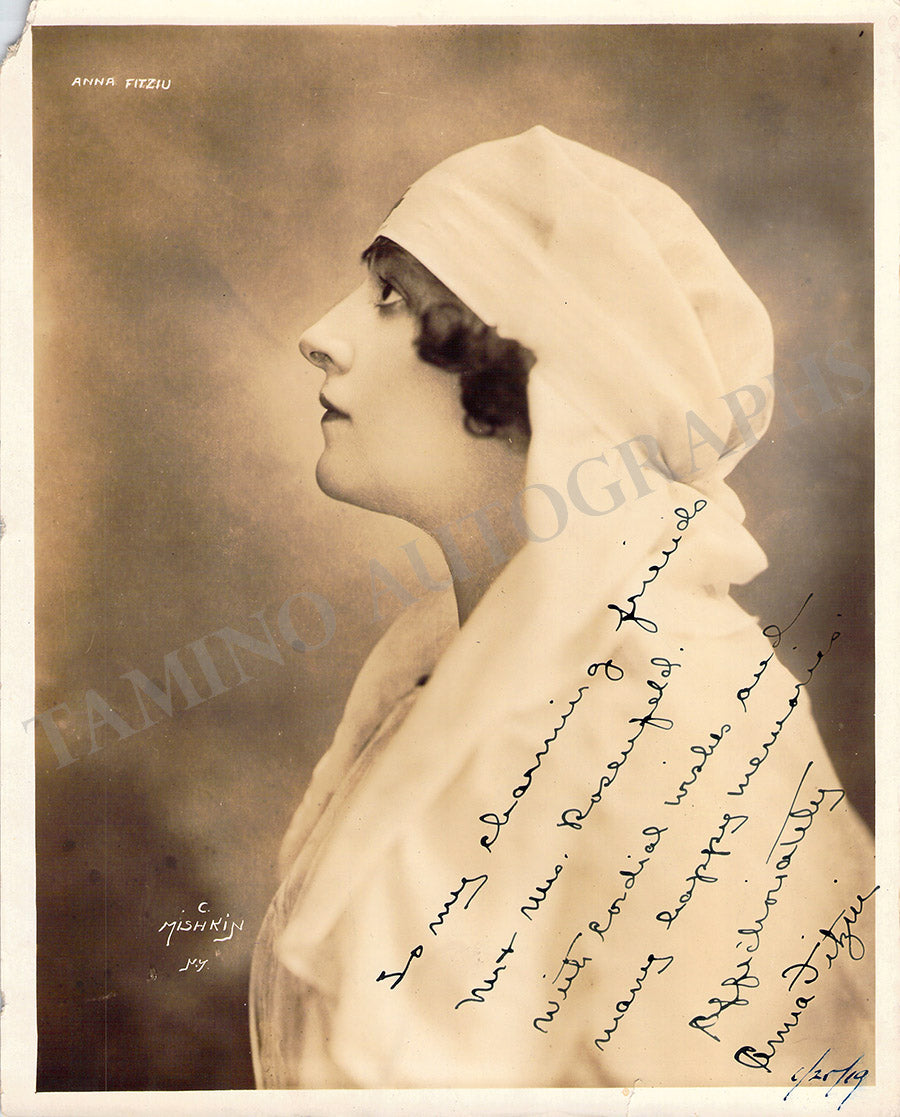 ANNA FITZIU
TAMINO AUTOGRAPHS
To my charming friends
Mr + Mrs. Rosenfeld.
with cordial wishes and
many happy memories.
Affectionately
Anna Fitziu
1/25/19
C.
MISHKIN
N.Y.